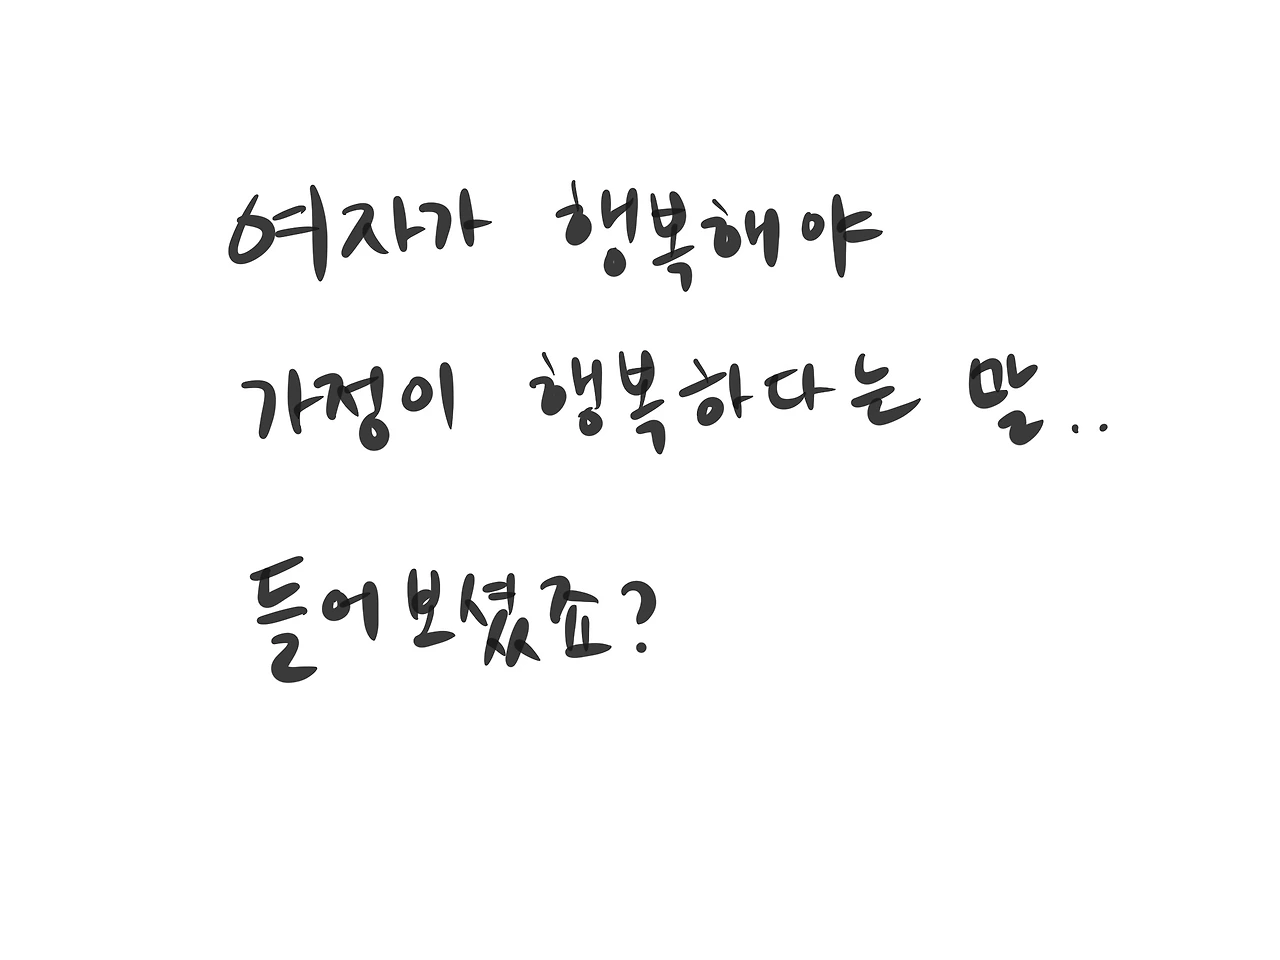 여자가 행복해야
가정이 행복하다는 말..
들어보셨죠?